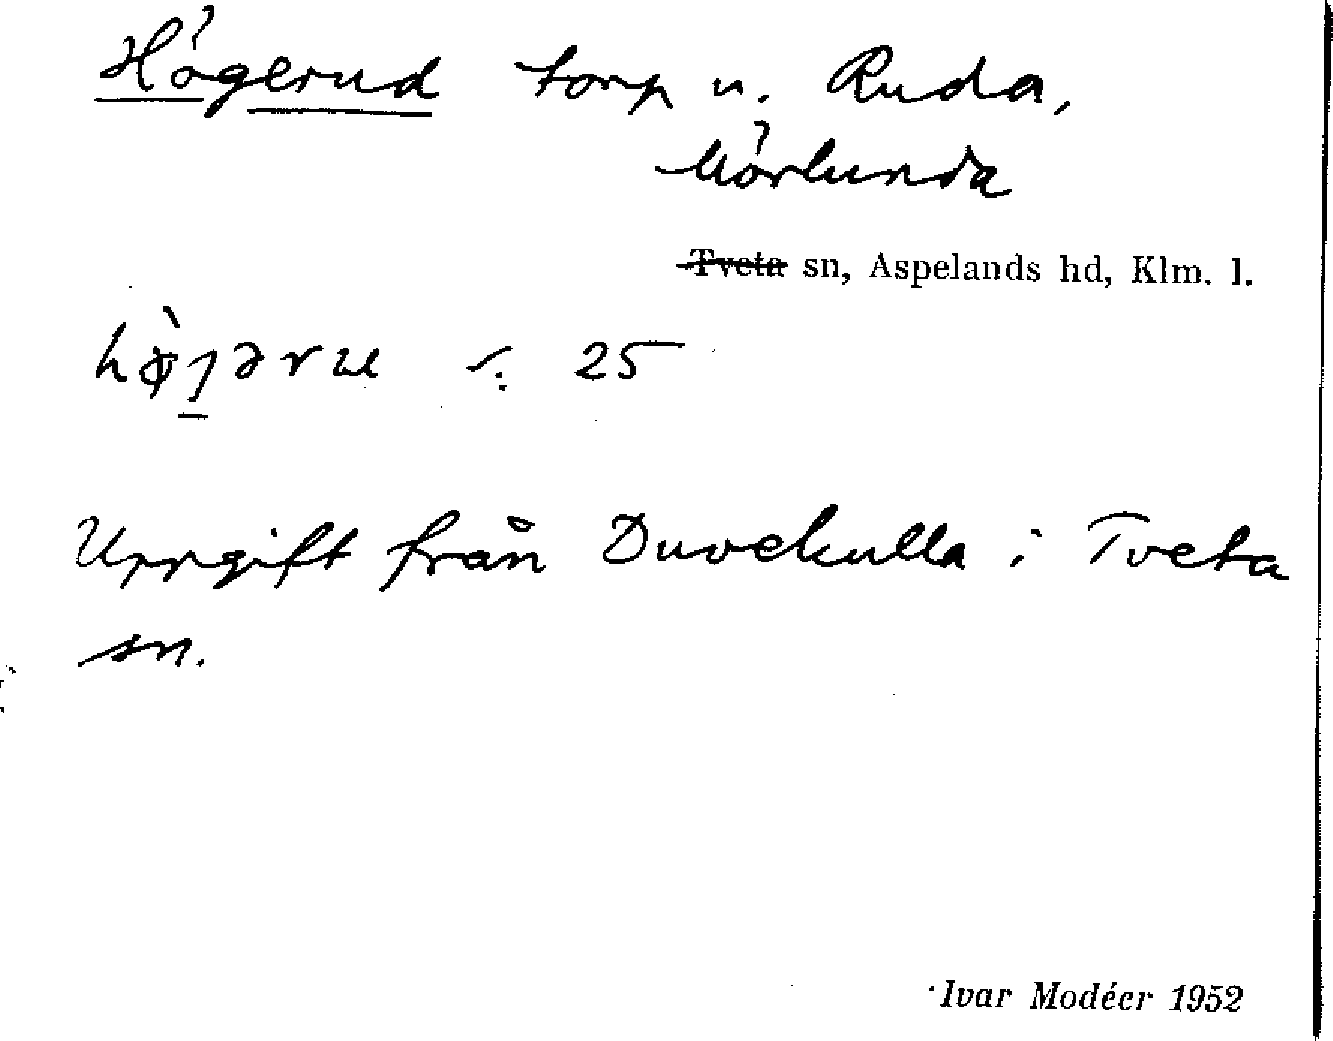 Högerud torp u. Ruda,
Mörlunda
Tveta sn, Aspelands hd, Klm. l.
25
Uppgift från Duvekulla i Tveta
sn.
Ivar Modéer 1952